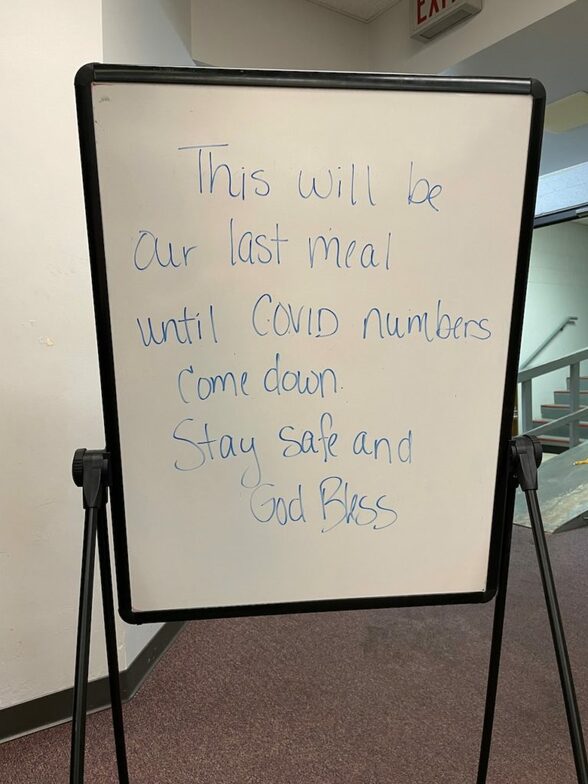 EXIT
This will be
our last meal
until COVID numbers
come down.
Stay safe and
God Bless